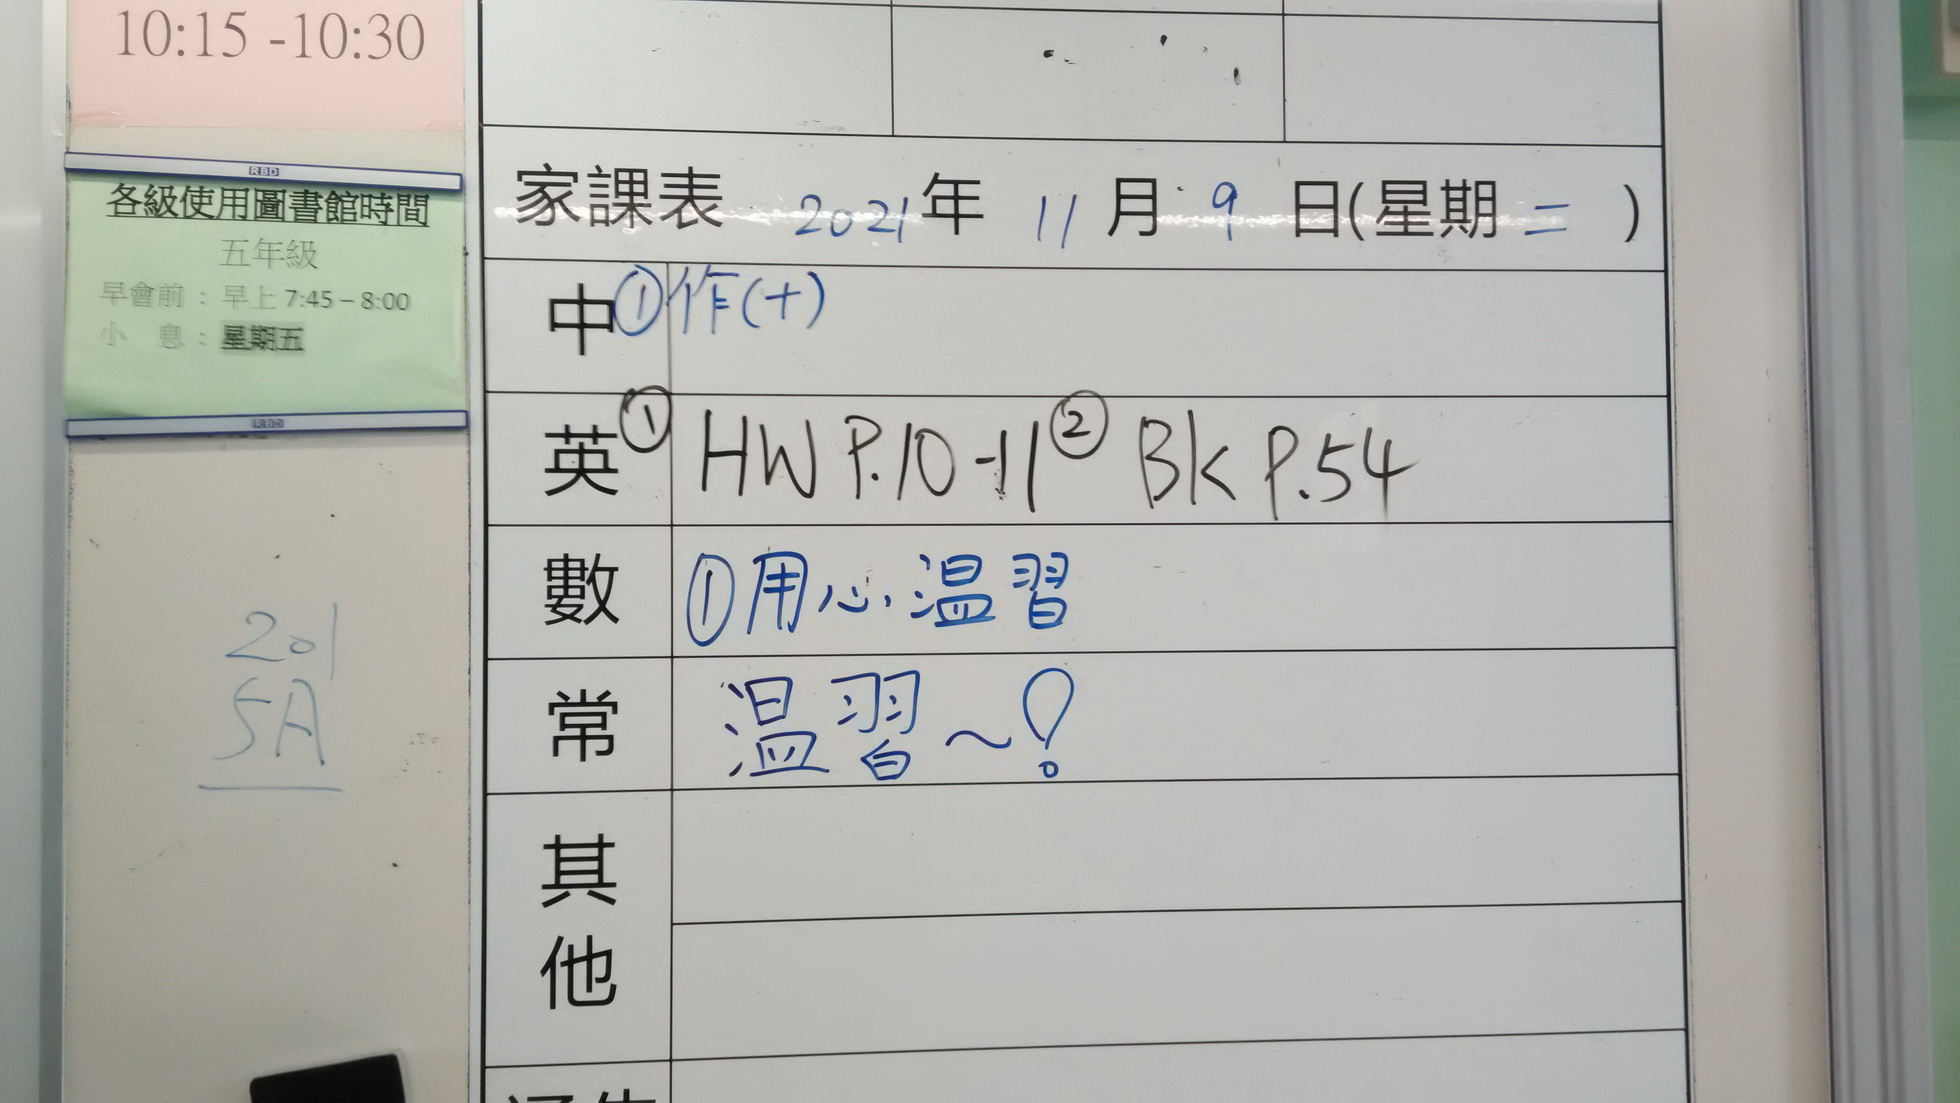 10:15 -10:30
RBD
各級使用圖書館時間
五年級
早會前：早上 7:45 – 8:00
小 息：星期五
RBD
201
5A
家課表 2021年 11月 9日(星期二)
中 ①作(十)
英 ①HW P.10-11 ②BK P.54
數 ①用心溫習
常 溫習～!
其他